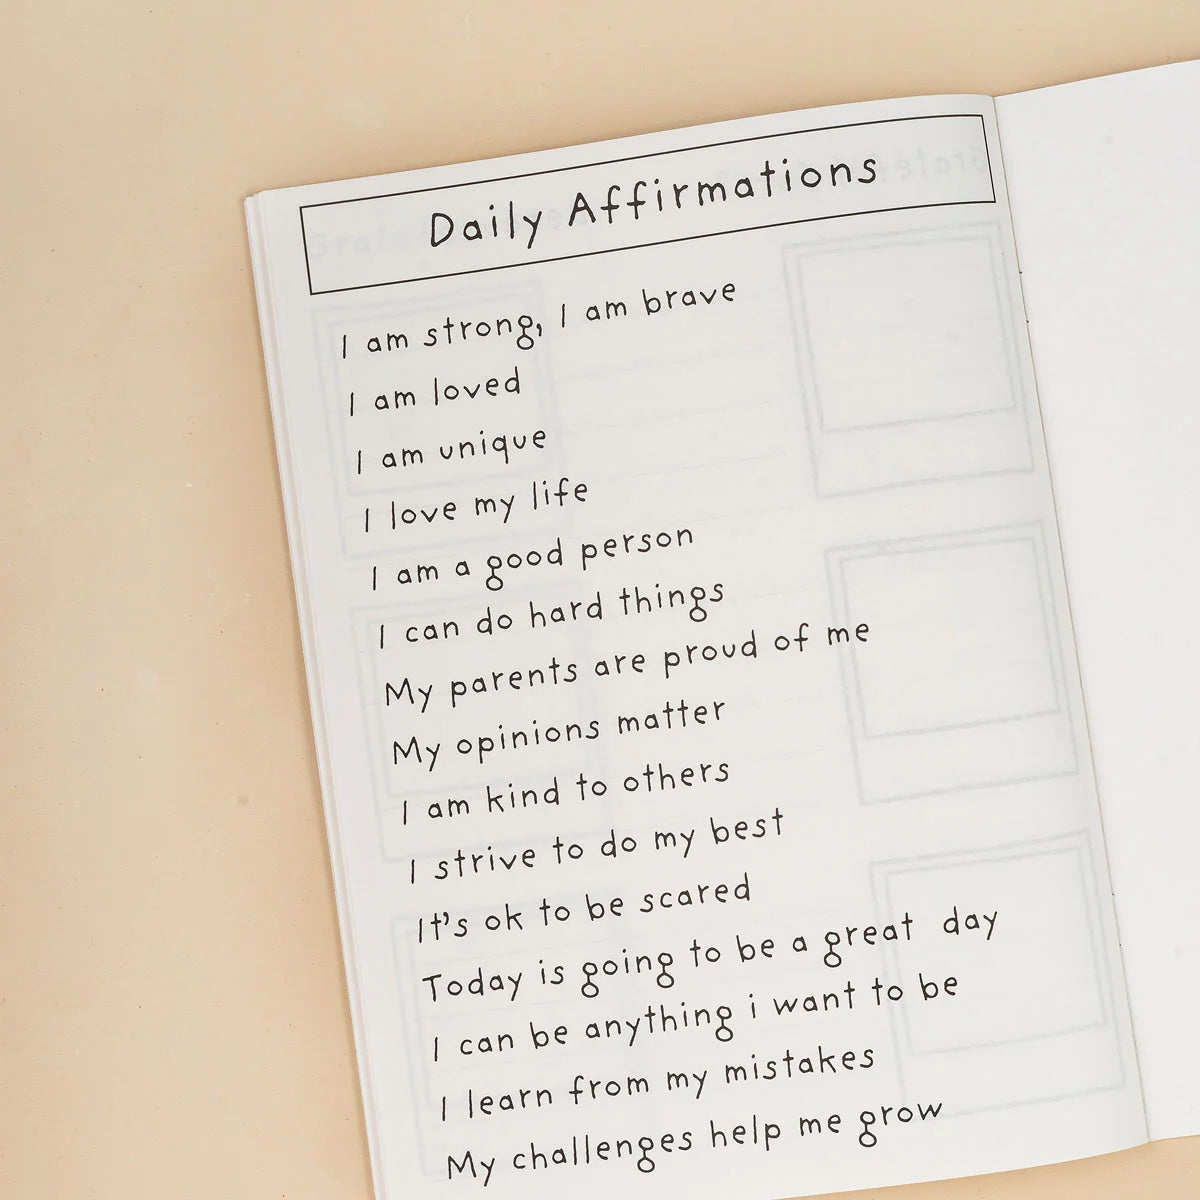 Daily Affirmations
I am strong, I am brave
I am loved
I am unique
I love my life
I am a good person
I can do hard things
My parents are proud of me
My opinions matter
I am kind to others
I strive to do my best
It's ok to be scared
Today is going to be a great day
I can be anything i want to be
I learn from my mistakes
My challenges help me grow